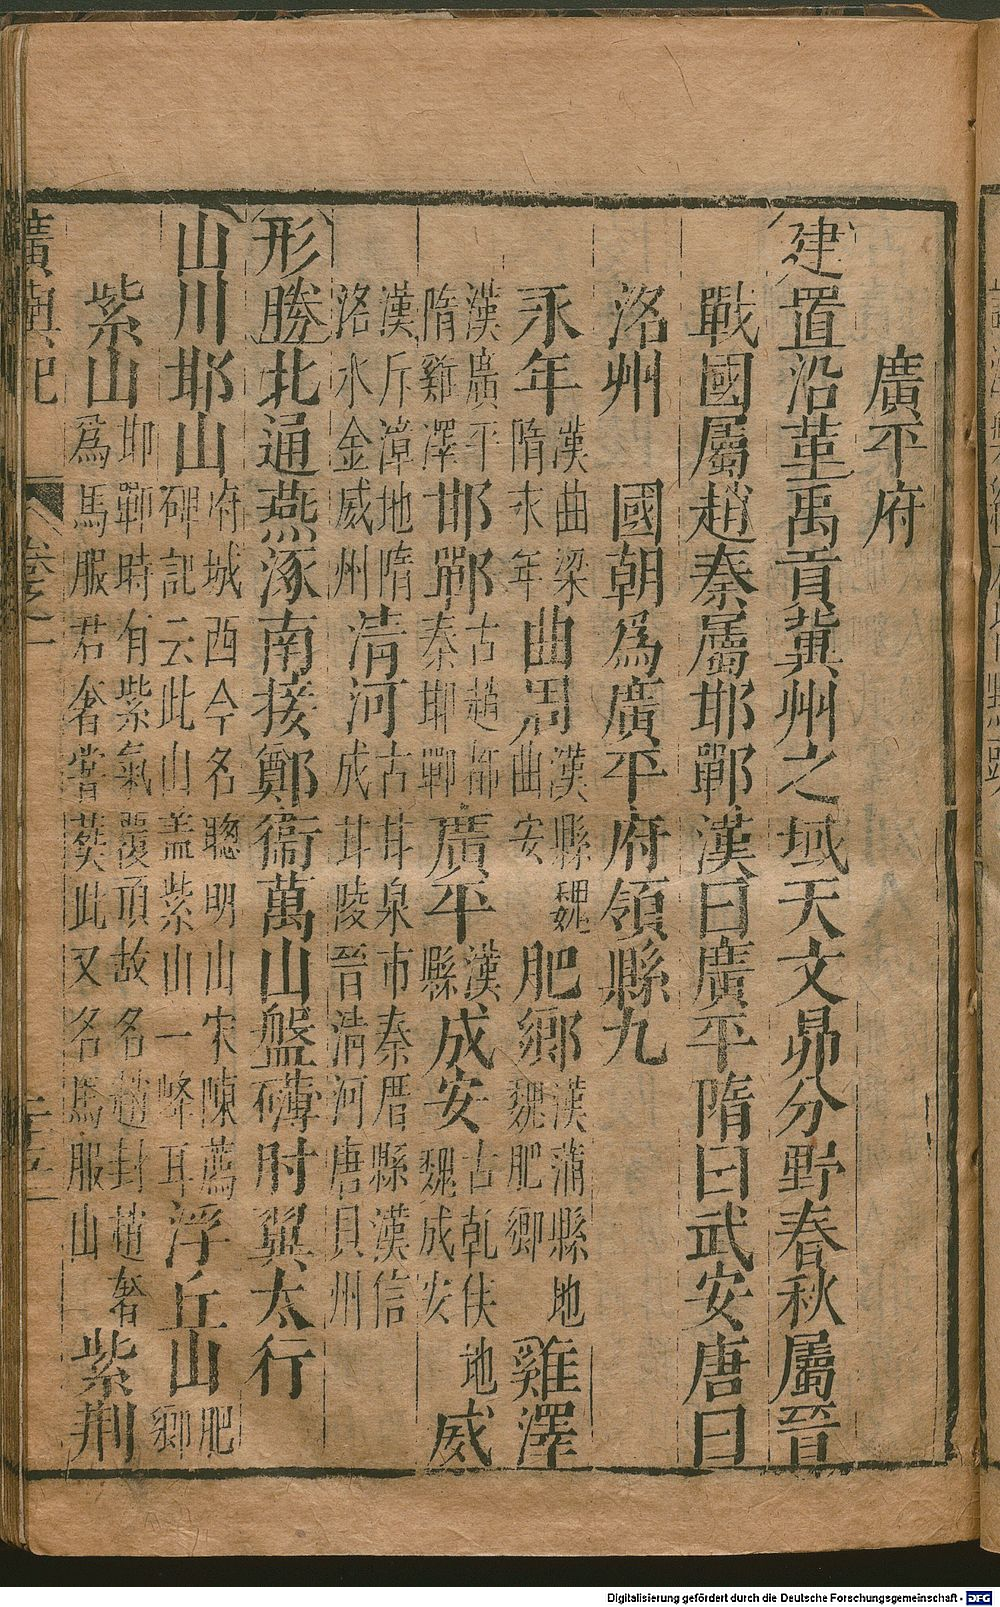 廣平府
建置沿革禹貢冀州之域天文昴分野春秋屬晉
戰國屬趙秦屬邯鄲漢曰廣平隋曰武安唐曰
洺州 國朝爲廣平府領縣九
永年漢曲梁隋永年曲周漢縣魏曲安肥鄉漢蒲縣地魏肥鄉雞澤
漢廣平隋雞澤邯鄲古趙都秦邯鄲廣平漢縣成安古乾侯地魏成安威
漢斥漳地隋洺水金威州清河古甘泉市秦厝縣漢信成甘陵晉清河唐貝州
形勝北通燕涿南接鄭衞萬山盤礴肘翼太行
山川耶山府城西今名聰明山宋陳薦碑記云此山盖紫山一峰耳浮丘山肥鄉
紫山邯鄲時有紫氣覆頂故名趙封趙奢爲馬服君奢嘗葬此又名馬服山紫荆
廣輿記 卷之一
Digitalisierung gefördert durch die Deutsche Forschungsgemeinschaft - DFG